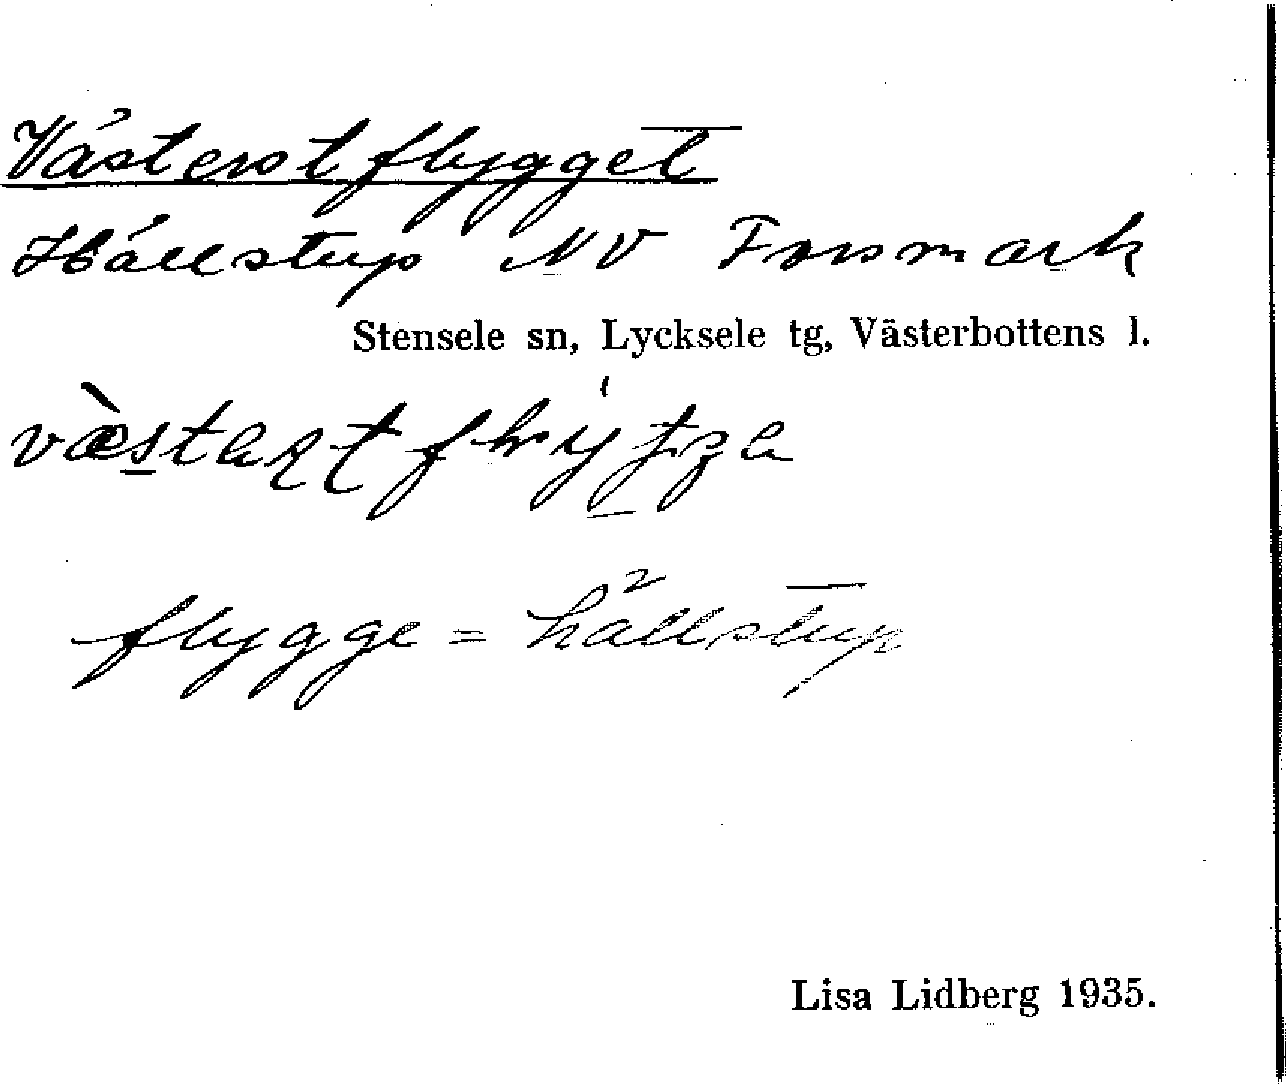 Västerstflygget
Hällstup NV Forsmark
Stensele sn, Lycksele tg, Västerbottens l.
flygge = hällstup
Lisa Lidberg 1935.